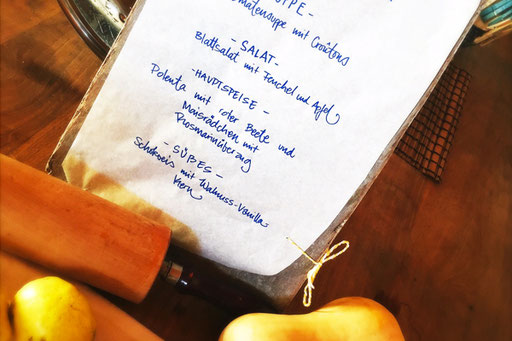 PPE -
omatensuppe mit Croûtons
- SALAT -
Blattsalat mit Fenchel und Apfel
- HAUPTSPEISE -
Polenta mit roter Beete und
Maisrädchen mit
Rosmarinüberzug
- SÜßES -
Schokoeis mit Walnuss-Vanilla
Kern